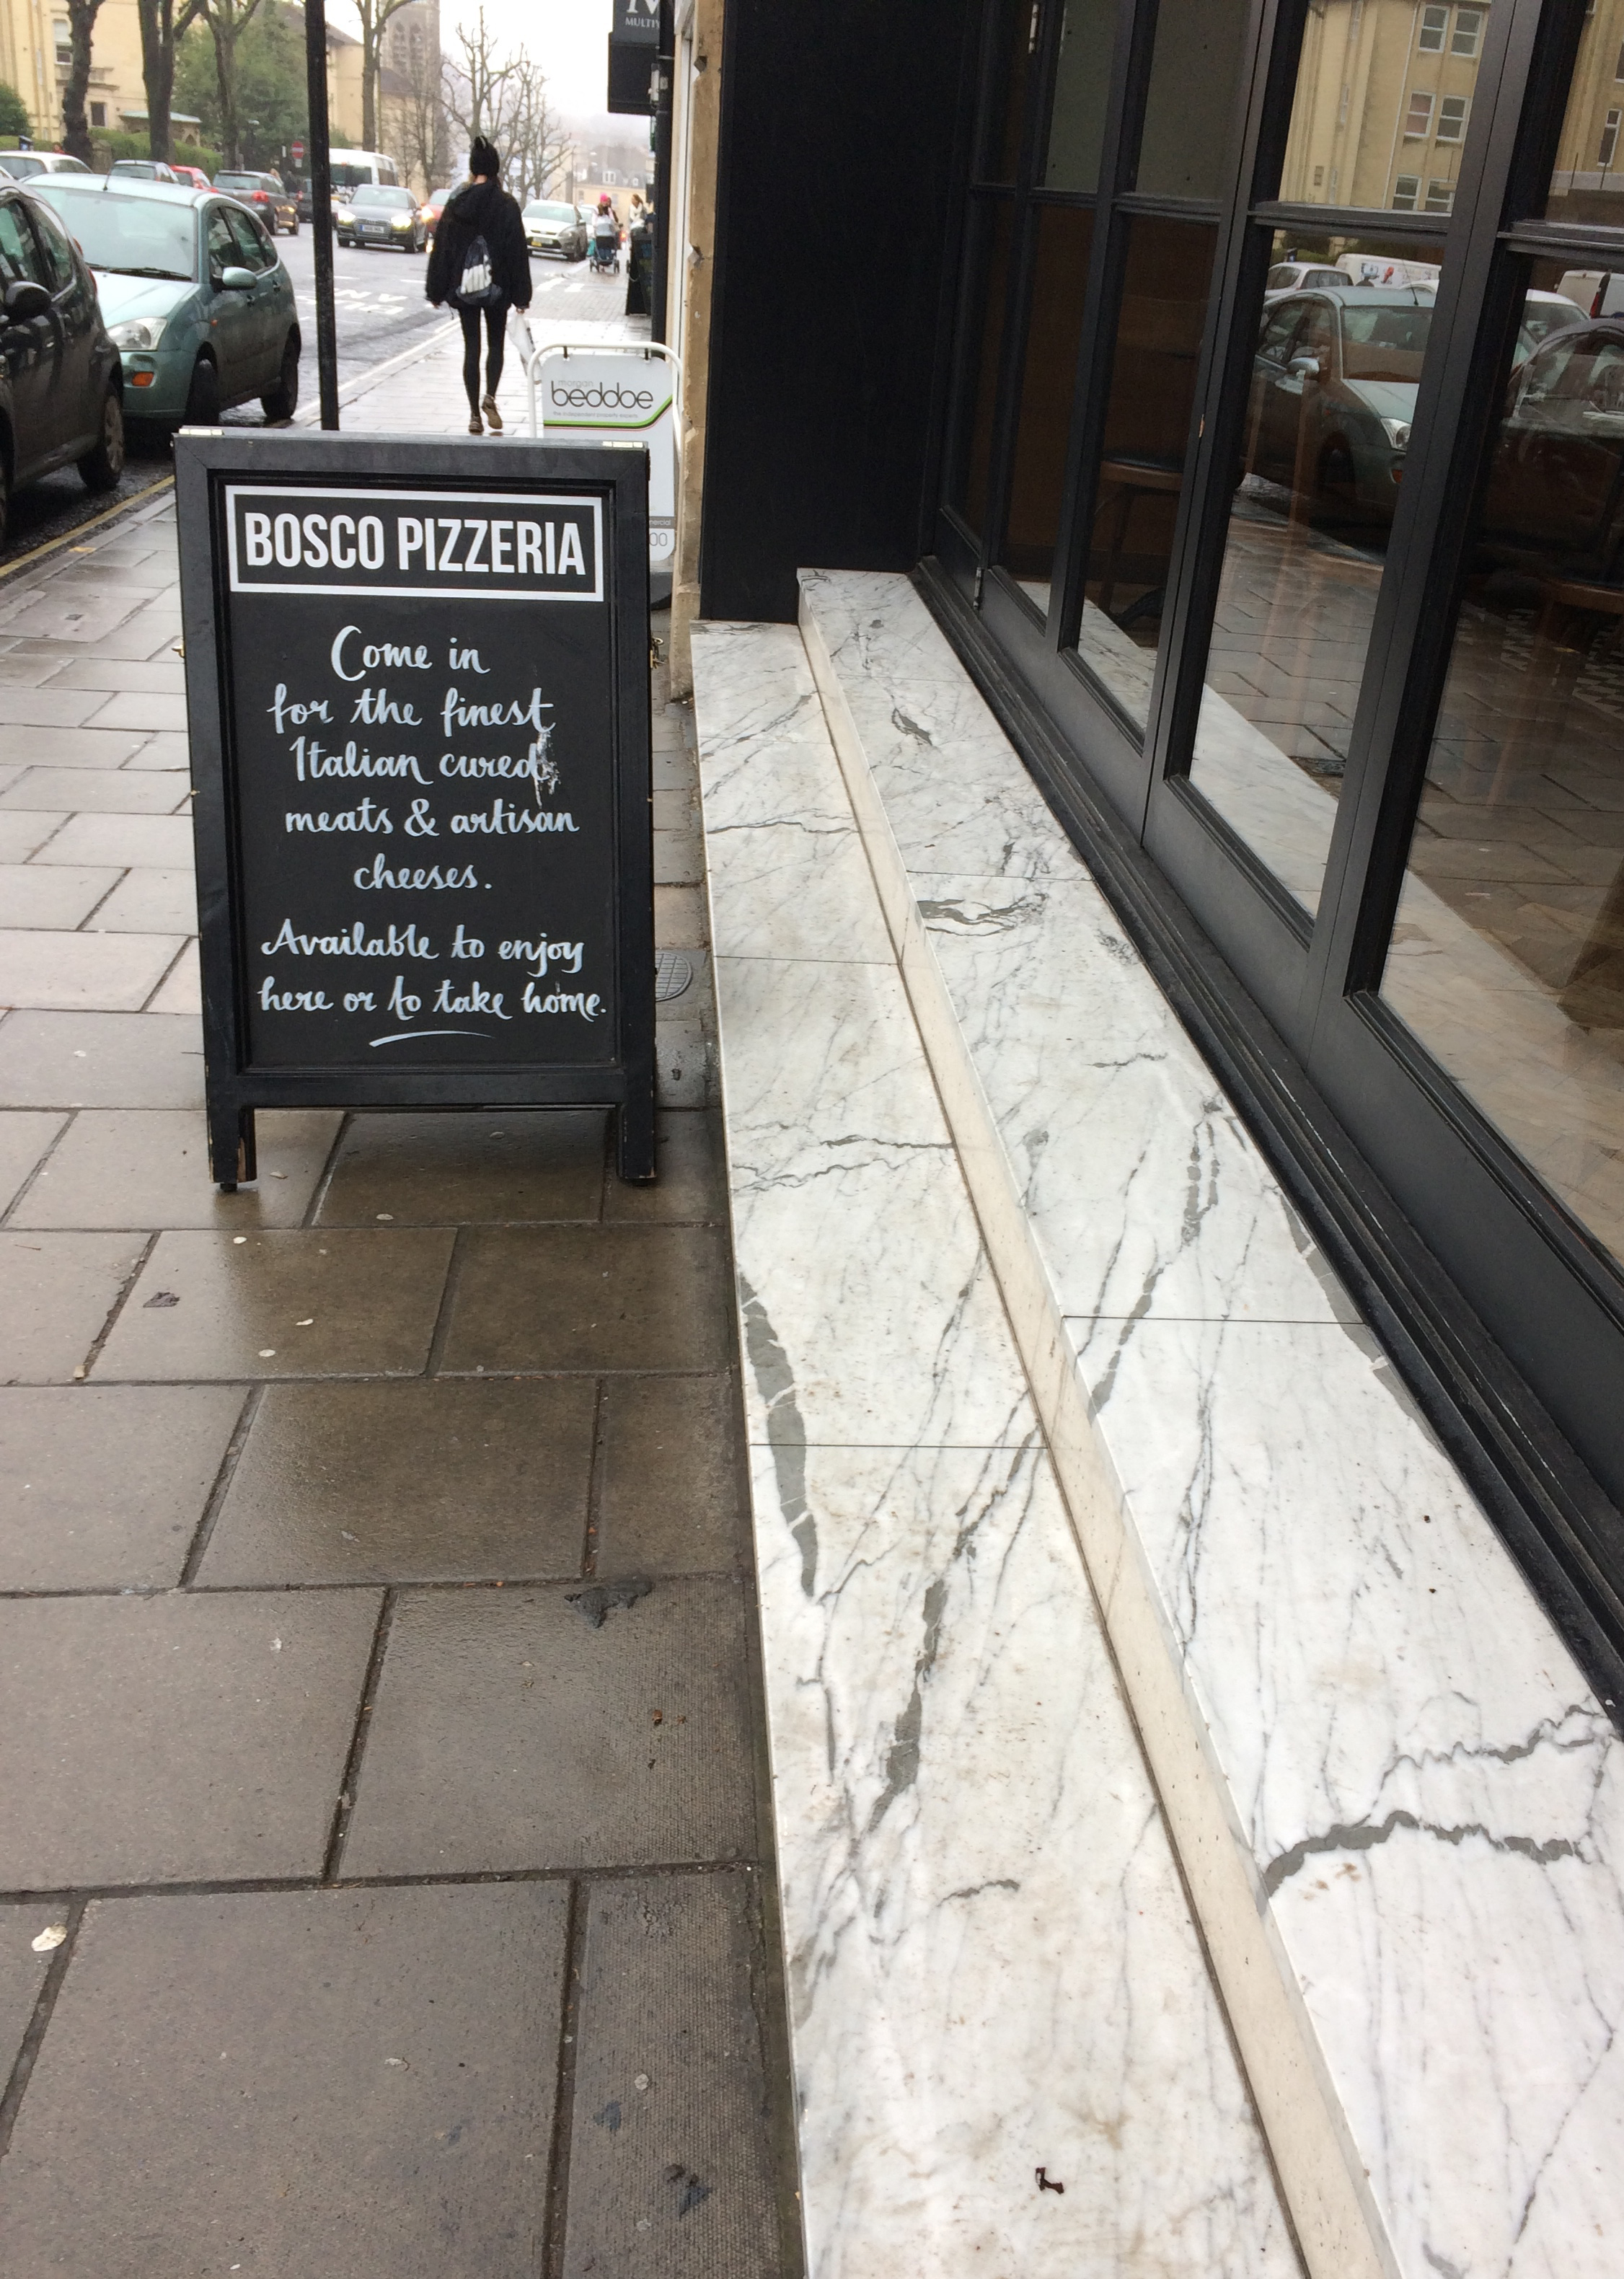 BOSCO PIZZERIA
Come in
for the finest
Italian cured
meats & artisan
cheeses.
Available to enjoy
here or to take home.
morgan
beddoe
the independent property experts